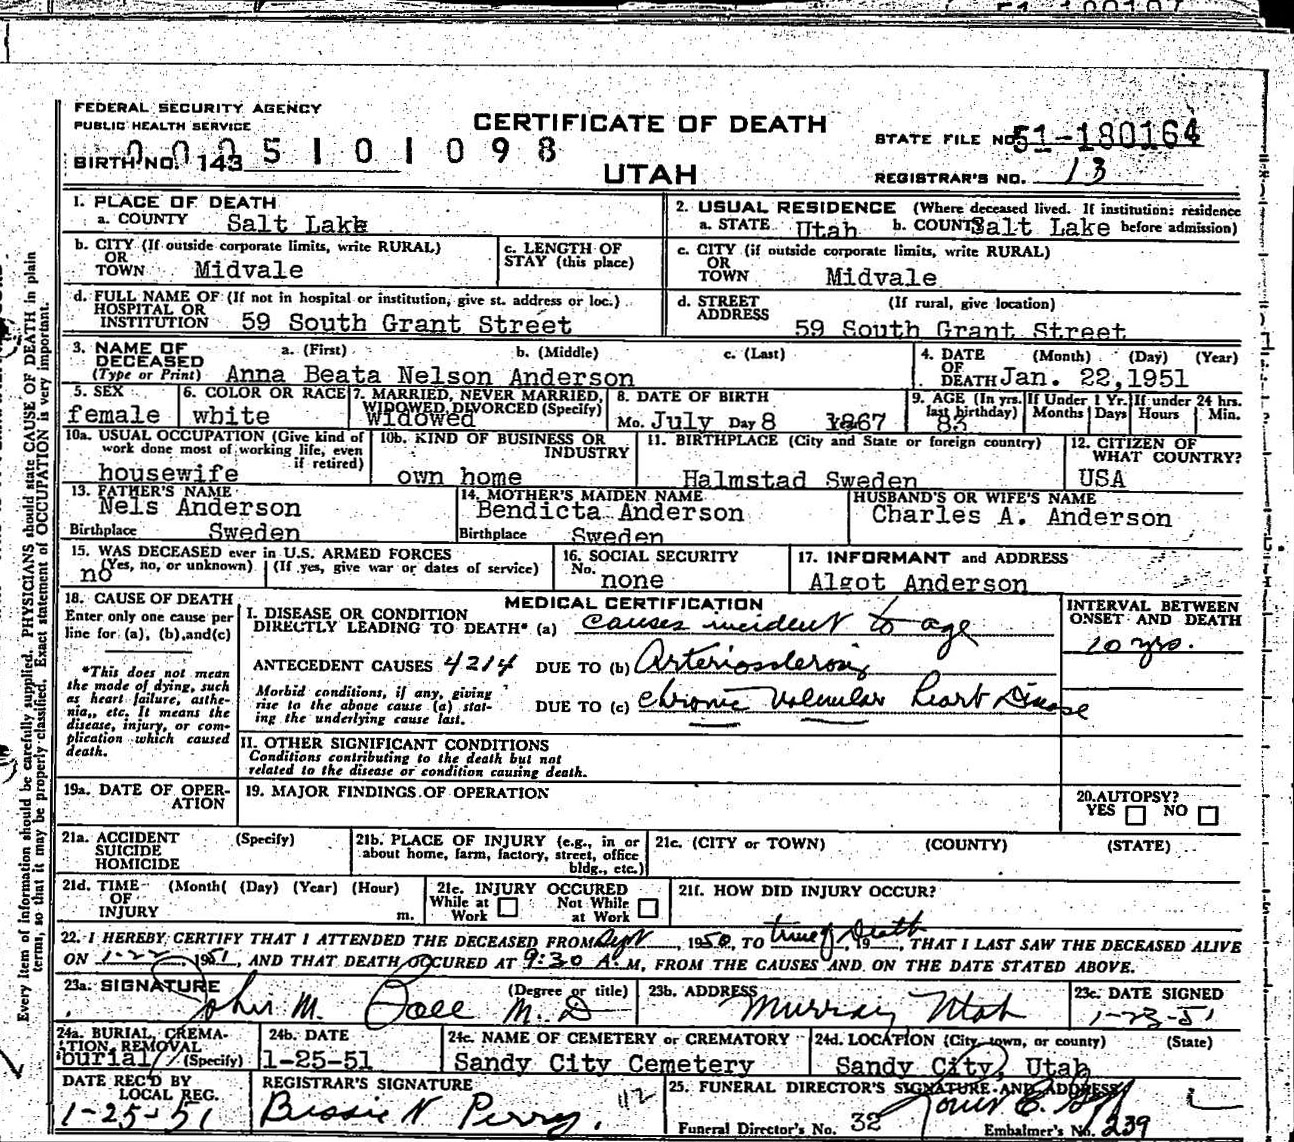 FEDERAL SECURITY AGENCY
PUBLIC HEALTH SERVICE
CERTIFICATE OF DEATH
STATE FILE NO. 51-180164
BIRTH NO. 143
0005101098
UTAH
REGISTRAR'S NO. 13
1. PLACE OF DEATH
a. COUNTY Salt Lake
2. USUAL RESIDENCE (Where deceased lived. If institution: residence before admission)
a. STATE Utah b. COUNTY Salt Lake
b. CITY (If outside corporate limits, write RURAL)
OR
TOWN Midvale
c. LENGTH OF
STAY (this place)
c. CITY (if outside corporate limits, write RURAL)
OR
TOWN Midvale
d. FULL NAME OF (If not in hospital or institution, give st. address or loc.)
HOSPITAL OR
INSTITUTION 59 South Grant Street
d. STREET (If rural, give location)
ADDRESS 59 South Grant Street
3. NAME OF
DECEASED
(Type or Print)
a. (First) b. (Middle) c. (Last)
Anna Beata Nelson Anderson
4. DATE (Month) (Day) (Year)
OF
DEATH Jan. 22, 1951
5. SEX
female
6. COLOR OR RACE
white
7. MARRIED, NEVER MARRIED,
WIDOWED, DIVORCED (Specify)
Widowed
8. DATE OF BIRTH
Mo. July Day 8 1867
9. AGE (In yrs. last birthday) 83
If Under 1 Yr. Months Days
If under 24 hrs. Hours Min.
10a. USUAL OCCUPATION (Give kind of
work done most of working life, even
if retired)
housewife
10b. KIND OF BUSINESS OR
INDUSTRY
own home
11. BIRTHPLACE (City and State or foreign country)
Halmstad Sweden
12. CITIZEN OF
WHAT COUNTRY?
USA
13. FATHER'S NAME
Nels Anderson
Birthplace Sweden
14. MOTHER'S MAIDEN NAME
Bendicta Anderson
Birthplace Sweden
HUSBAND'S OR WIFE'S NAME
Charles A. Anderson
15. WAS DECEASED ever in U.S. ARMED FORCES
(Yes, no, or unknown) (If yes, give war or dates of service)
no
16. SOCIAL SECURITY
No. none
17. INFORMANT and ADDRESS
Algot Anderson
18. CAUSE OF DEATH
Enter only one cause per
line for (a), (b), and (c)
*This does not mean
the mode of dying, such
as heart failure, asthe-
nia, etc. It means the
disease, injury, or com-
plication which caused
death.
MEDICAL CERTIFICATION
I. DISEASE OR CONDITION
DIRECTLY LEADING TO DEATH* (a) Causes incident to age
ANTECEDENT CAUSES 4214 DUE TO (b) Arteriosclerosis
Morbid conditions, if any, giving
rise to the above cause (a) stat-
ing the underlying cause last.
DUE TO (c) chronic Valvular Heart Disease
INTERVAL BETWEEN
ONSET AND DEATH
10 yrs.
II. OTHER SIGNIFICANT CONDITIONS
Conditions contributing to the death but not
related to the disease or condition causing death.
19a. DATE OF OPER-
ATION
19. MAJOR FINDINGS OF OPERATION
20. AUTOPSY?
YES NO
21a. ACCIDENT (Specify)
SUICIDE
HOMICIDE
21b. PLACE OF INJURY (e.g., in or
about home, farm, factory, street, office
bldg., etc.)
21c. (CITY or TOWN) (COUNTY) (STATE)
21d. TIME (Month( (Day) (Year) (Hour)
OF
INJURY m.
21e. INJURY OCCURED
While at Work Not While at Work
21f. HOW DID INJURY OCCUR?
22. I HEREBY CERTIFY THAT I ATTENDED THE DECEASED FROM Sept, 1950, TO time of Death, 19 , THAT I LAST SAW THE DECEASED ALIVE
ON 1-22 1951, AND THAT DEATH OCCURED AT 9:30 A.M, FROM THE CAUSES AND ON THE DATE STATED ABOVE.
23a. SIGNATURE (Degree or title)
John M. M.D
23b. ADDRESS
Murray Utah
23c. DATE SIGNED
1-23-51
24a. BURIAL, CREMA-
TION, REMOVAL
(Specify)
burial
24b. DATE
1-25-51
24c. NAME OF CEMETERY or CREMATORY
Sandy City Cemetery
24d. LOCATION (City, town, or county) (State)
Sandy City, Utah
DATE REC'D BY
LOCAL REG.
1-25-51
REGISTRAR'S SIGNATURE
Bessie N Perry
112
25. FUNERAL DIRECTOR'S SIGNATURE AND ADDRESS
Funeral Director's No. 32 Embalmer's No. 239
Every item of information should be carefully supplied. PHYSICIANS should state CAUSE OF DEATH in plain
terms, so that it may be properly classified. Exact statement of OCCUPATION is very important.